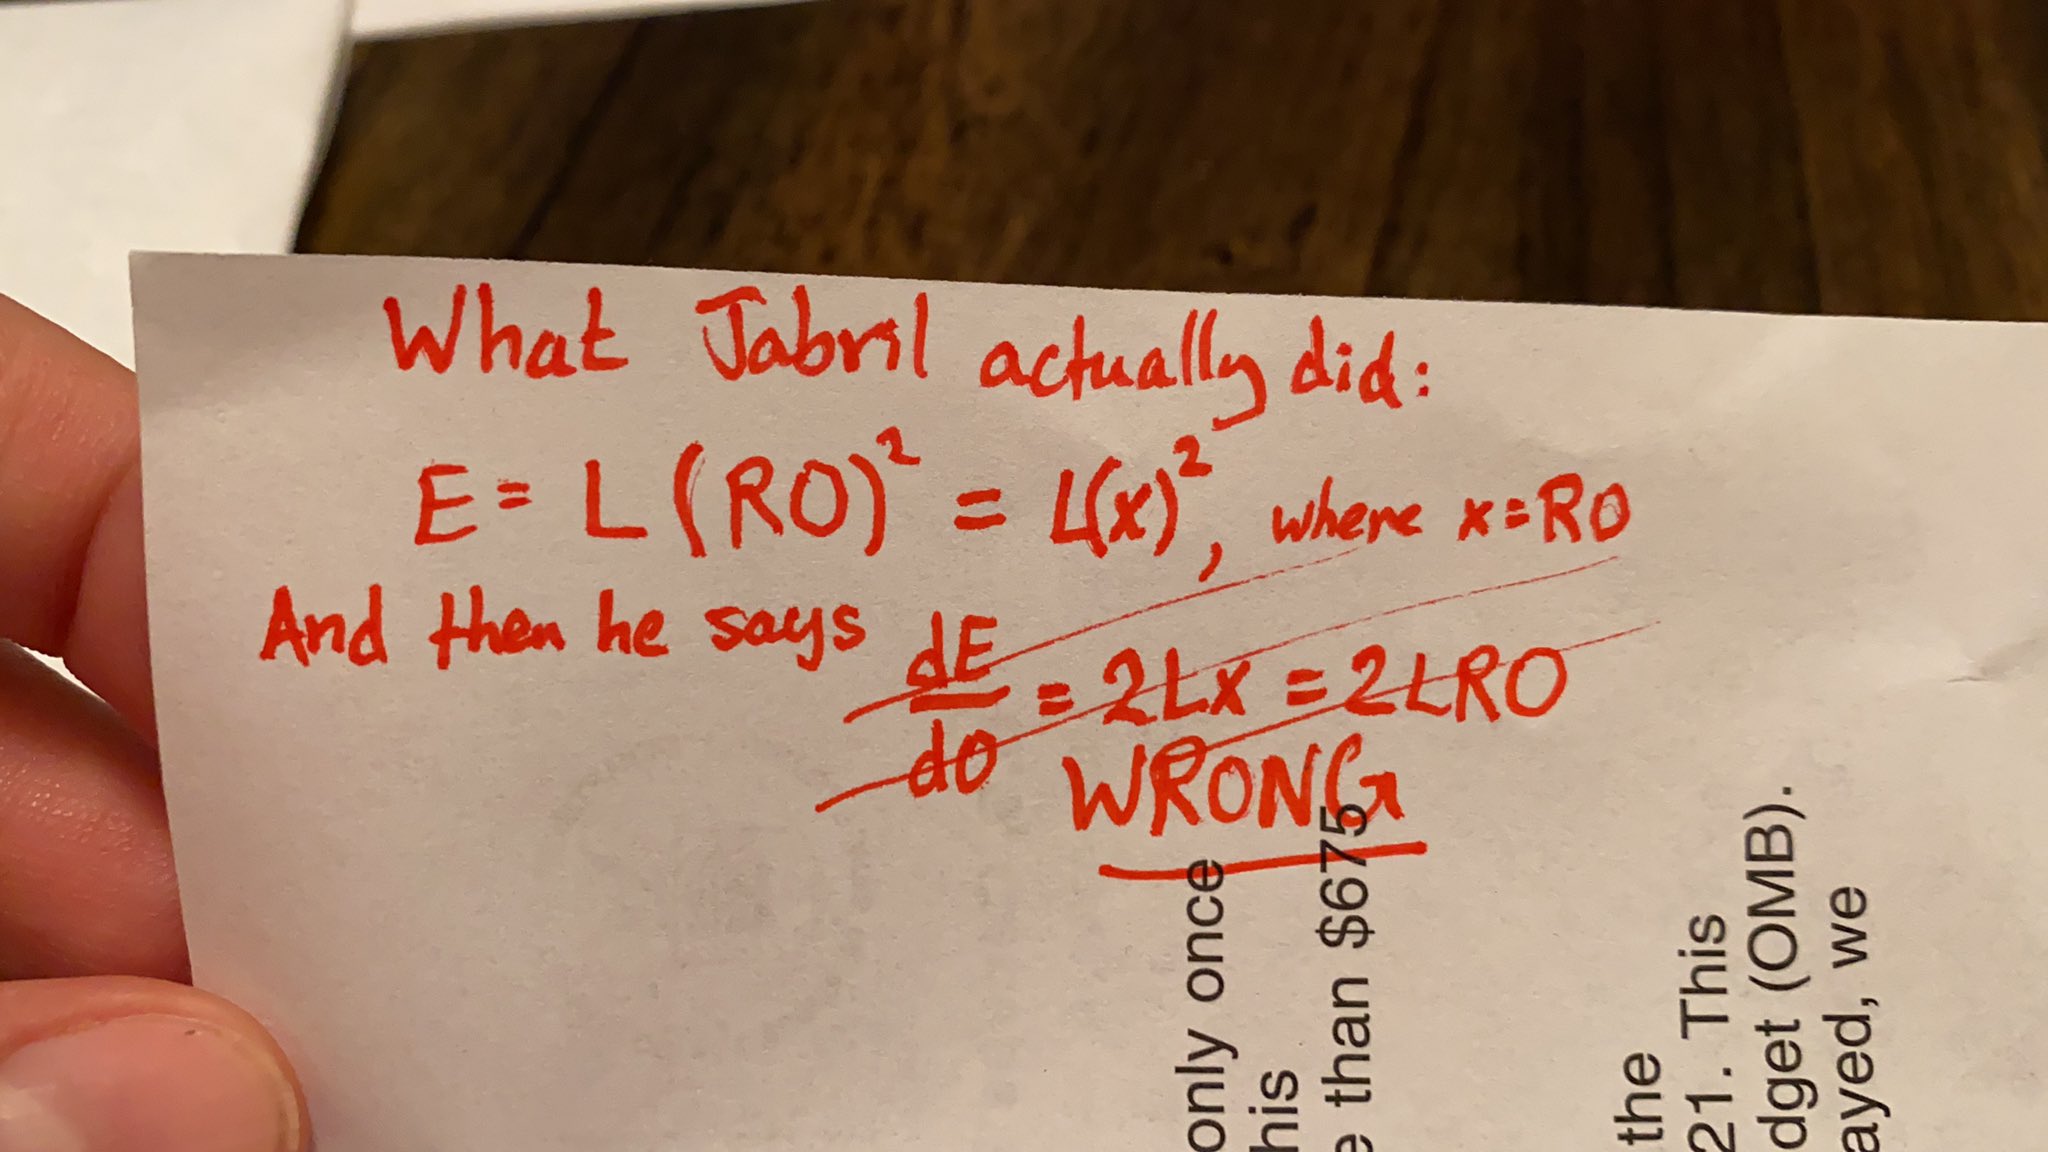 What Jabril actually did:
E = L (RO)² = L(x)², where x=RO
And then he says dE/dO = 2Lx = 2LRO
WRONG
only once
his
e than $675
the
21. This
dget (OMB).
ayed, we